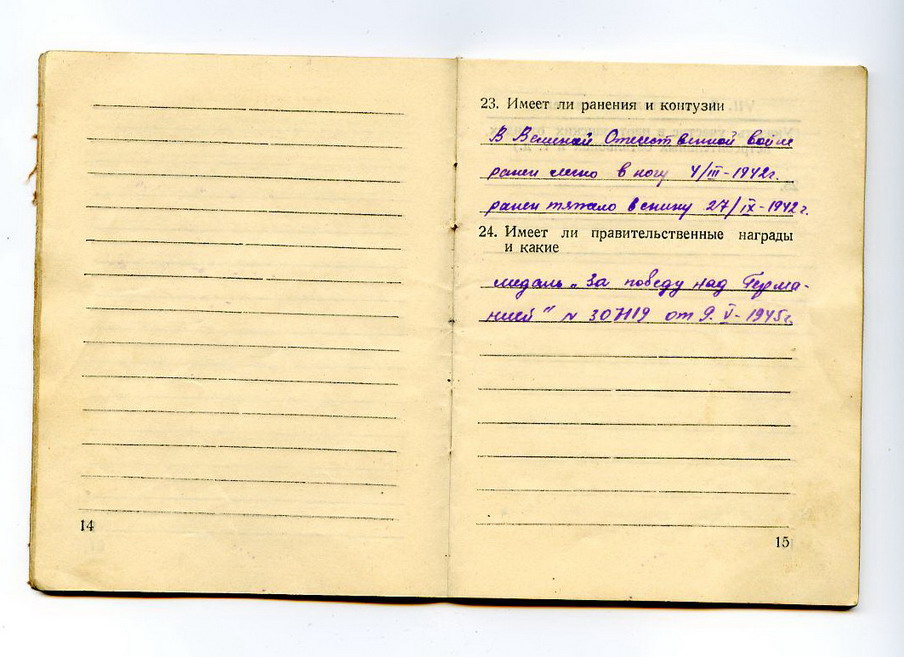 23. Имеет ли ранения и контузии
В Великой Отечественной войне
ранен легко в ногу 4/III-1942г.
ранен тяжело в спину 27/IX-1942г.
24. Имеет ли правительственные награды
и какие
медаль „За победу над Герма-
нией" N 307119 от 9.V-1945г.
14
15